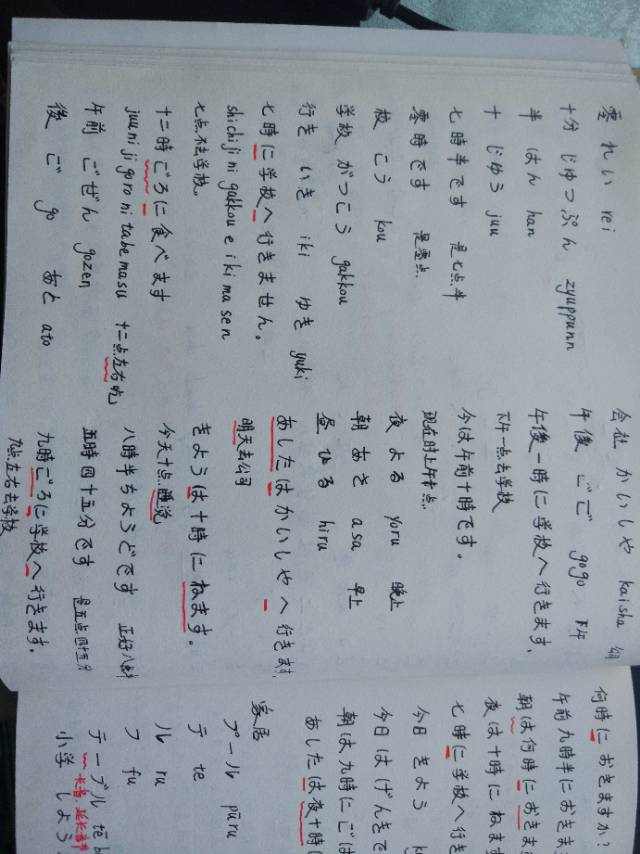 零 れい rei
十分 じゅっぷん zyuppunn
半 はん han
十 じゅう juu
七時半です 是七点半
零時です 是零点
校 こう kou
学校 がっこう gakkou
行き いき iki ゆき yuki
七時に学校へ行きません。
shichiji ni gakkou e ikimasen
七点不去学校。
十二時ごろに食べます
juuniji goro ni tabemasu 十二点左右吃
午前 ごぜん gozen
後 ご go あと ato
会社 かいしゃ kaisha 公司
午後 ごご gogo 下午
午後一時に学校へ行きます、
下午一点去学校
今は午前十時です。
现在的上午十点
夜 よる yoru 晚上
朝 あさ asa 早上
昼 ひる hiru
あしたはかいしゃへ行きます
明天去公司
きょうは十時にねます。
今天十点睡觉
八時半ちょうどです 正好八点半
五時四十五分です 是五点四十五分
九時ごろに学校へ行きます。
九点左右去学校
何時におきますか?
午前九時半におきま
朝は何時におきま
夜は十時にねます
七時に学校へ行き
今日 きょう
今日はげんきで
朝は九時にごは
あしたは夜十時に
家居
プール pūru
テ te
ル ru
フ fu
テーブル tēb
小学 しょう